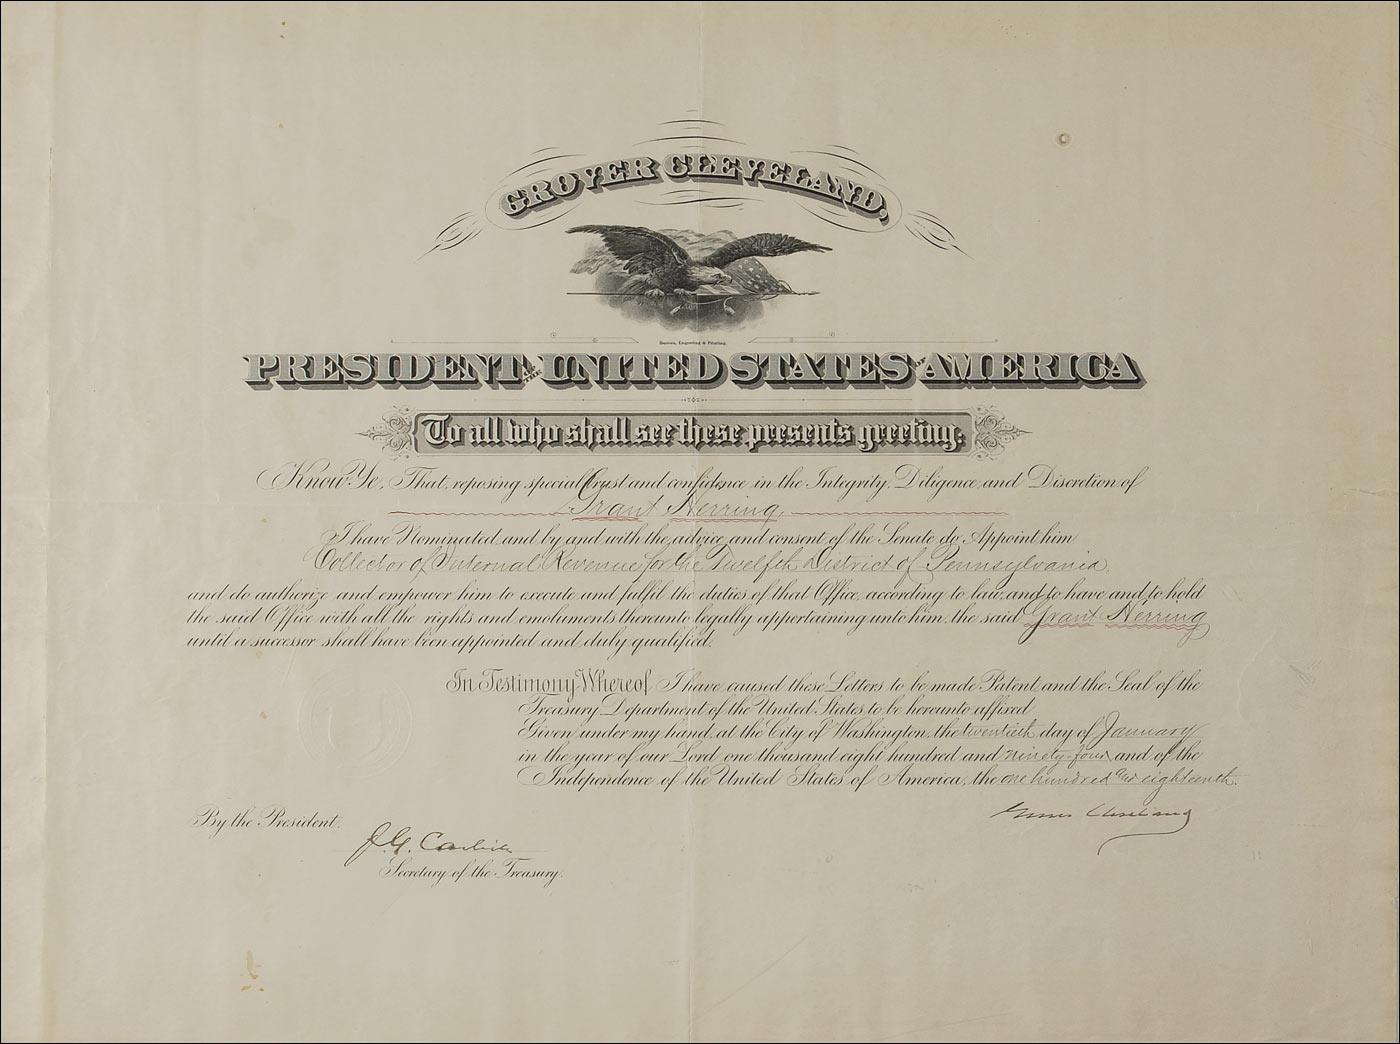 GROVER CLEVELAND,
Bureau, Engraving & Printing.
PRESIDENT OF THE UNITED STATES OF AMERICA
To all who shall see these presents greeting:
Know Ye, That, reposing special trust and confidence in the Integrity, Diligence, and Discretion of
Grant Herring,
I have Nominated and by and with the advice and consent of the Senate do Appoint him
Collector of Internal Revenue for the Twelfth District of Pennsylvania,
and do authorize and empower him to execute and fulfil the duties of that Office, according to law, and to have and to hold
the said Office with all the rights and emoluments thereunto legally appertaining unto him, the said Grant Herring
until a successor shall have been appointed and duly qualified.
In Testimony Whereof I have caused these Letters to be made Patent and the Seal of the
Treasury Department of the United States to be hereunto affixed
Given under my hand, at the City of Washington, the twentieth day of January
in the year of our Lord one thousand eight hundred and ninety-four, and of the
Independence of the United States of America, the one hundred and eighteenth.
Grover Cleveland
By the President.
J. G. Carlisle
Secretary of the Treasury.